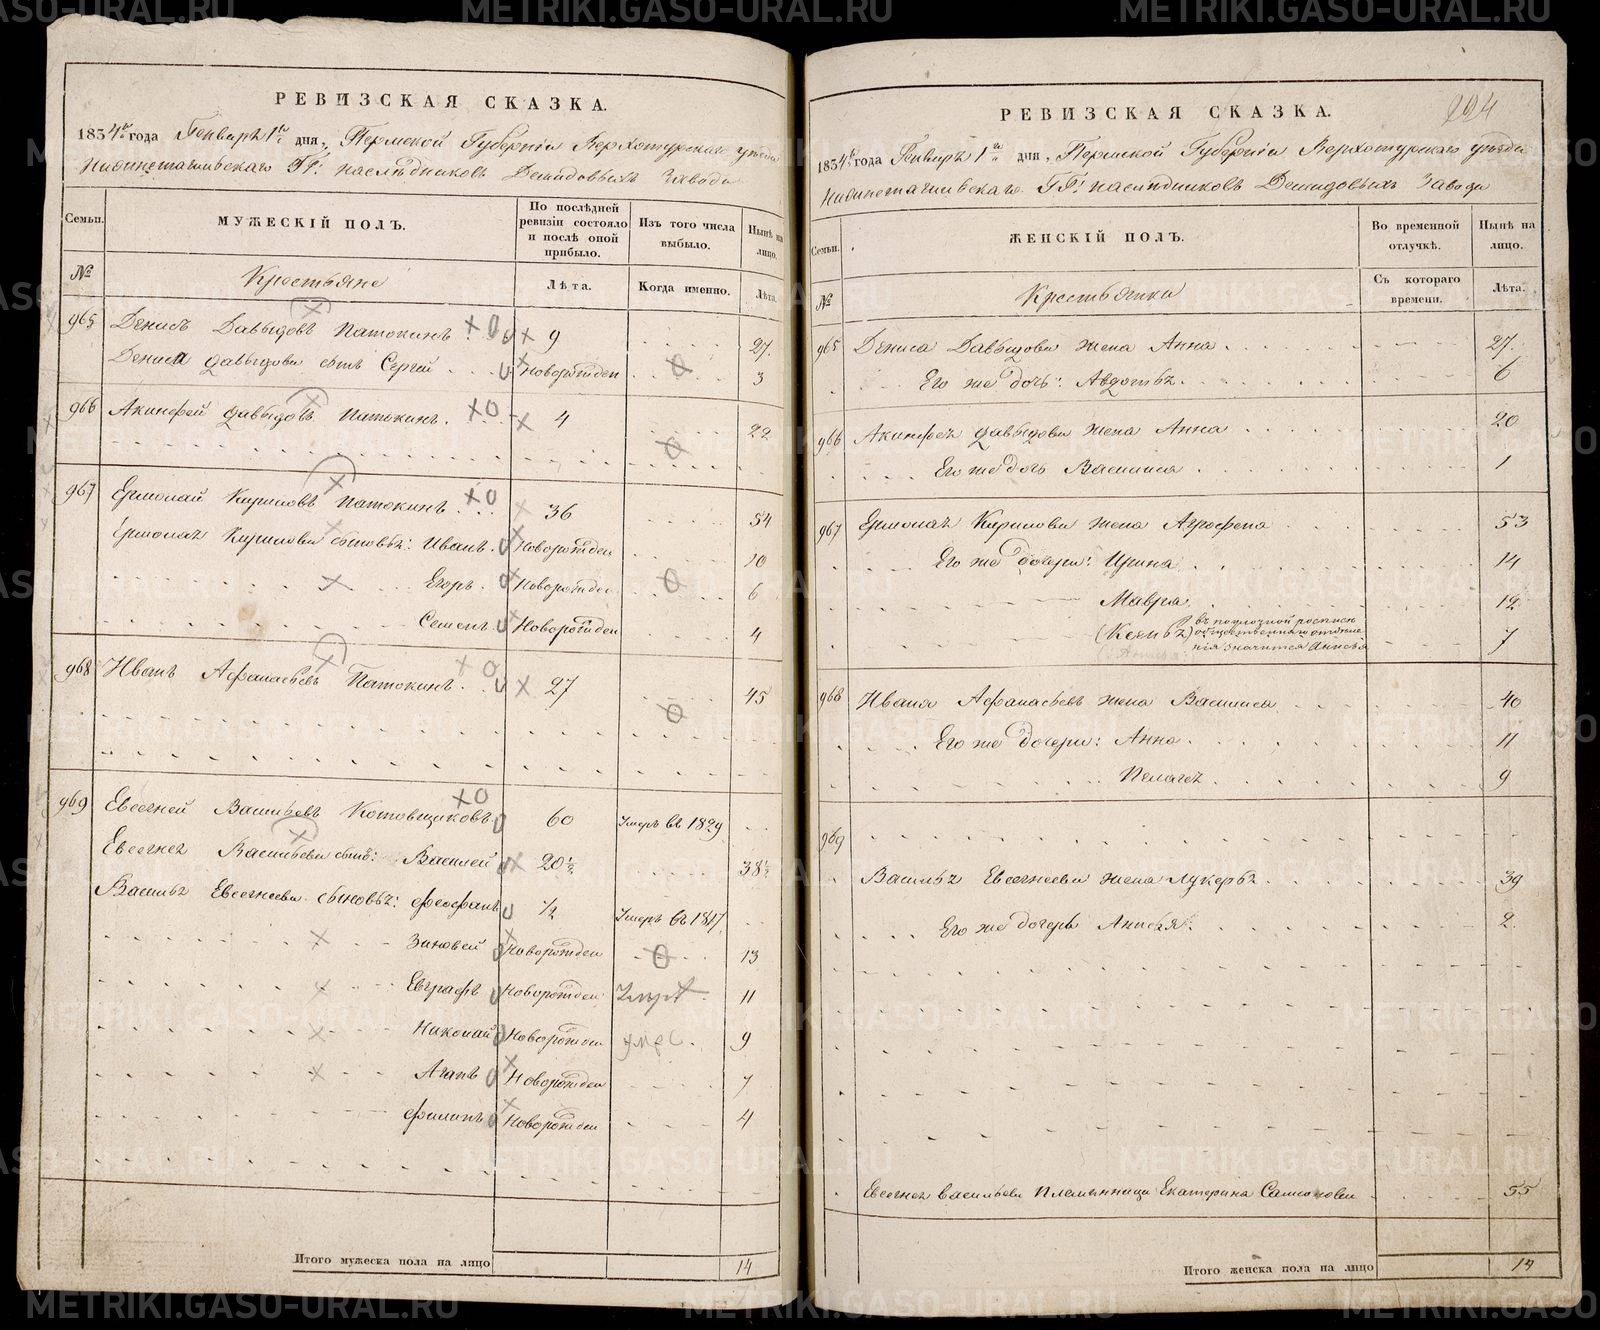 РЕВИЗСКАЯ СКАЗКА.
1834го года Генваря 1го дня, Пермской Губерніи Верхотурскаго уѣзда
Нижнетагильскаго ГГ. наслѣдниковъ Демидовыхъ Завода
Семьи. МУЖЕСКІЙ ПОЛЪ. По послѣдней ревизіи состояло и послѣ оной прибыло. Изъ того числа выбыло. Нынѣ на лицо.
№ Крестьяне Лѣта. Когда именно. Лѣта.
965 Денисъ Давыдовъ Патокинъ 9 27
Дениса Давыдова сынъ Сергей Новорожден 3
966 Акинфей Давыдовъ Патокинъ. 4 22
967 Ермолай Кириловъ Патокинъ 36 54
Ермолая Кирилова сыновья: Иванъ. Новорожден 10
Егоръ. Новорожден 6
Семенъ Новорожден 4
968 Иванъ Афанасьевъ Патокинъ. 27 45
969 Евсегней Васильевъ Котовщиковъ 60 Умеръ въ 1829
Евсегнея Васильева сынъ: Василей 20½ 38½
Василья Евсегнеева сыновья: Феофанъ ½ Умеръ въ 1817
Зиновей Новорожден 13
Евграфъ Новорожден Умеръ 11
Николай Новорожден умер. 9
Агапъ Новорожден 7
Филипъ Новорожден 4
Итого мужеска пола на лицо 14
204
РЕВИЗСКАЯ СКАЗКА.
1834го года Генваря 1го дня, Пермской Губерніи Верхотурскаго уѣзда
Нижнетагильскаго ГГ. наслѣдниковъ Демидовыхъ Завода
Семьи. ЖЕНСКІЙ ПОЛЪ. Во временной отлучкѣ. Нынѣ на лицо.
№ Крестьянки Съ котораго времени. Лѣта.
965 Дениса Давыдова жена Анна 27
Его же дочь: Авдотья. 6
966 Акинфея Давыдова жена Анна 20
Его же дочь Василиса 1
967 Ермолая Кирилова жена Агрофена 53
Его же дочери: Ирина 14
Мавра 12
(Ксенья) въ подушной росписи общественнаго отдѣленія значится Анисья 7
968 Ивана Афанасьевъ жена Василиса 40
Его же дочери: Анна. 11
Пелагея 9
969
Василья Евсегнеева жена Лукерья 39
Его же дочерь Анисья: 2
Евсегнея Васильева племянница Екатерина Самойлова 55
Итого женска пола на лицо 14
METRIKI.GASO-URAL.RU